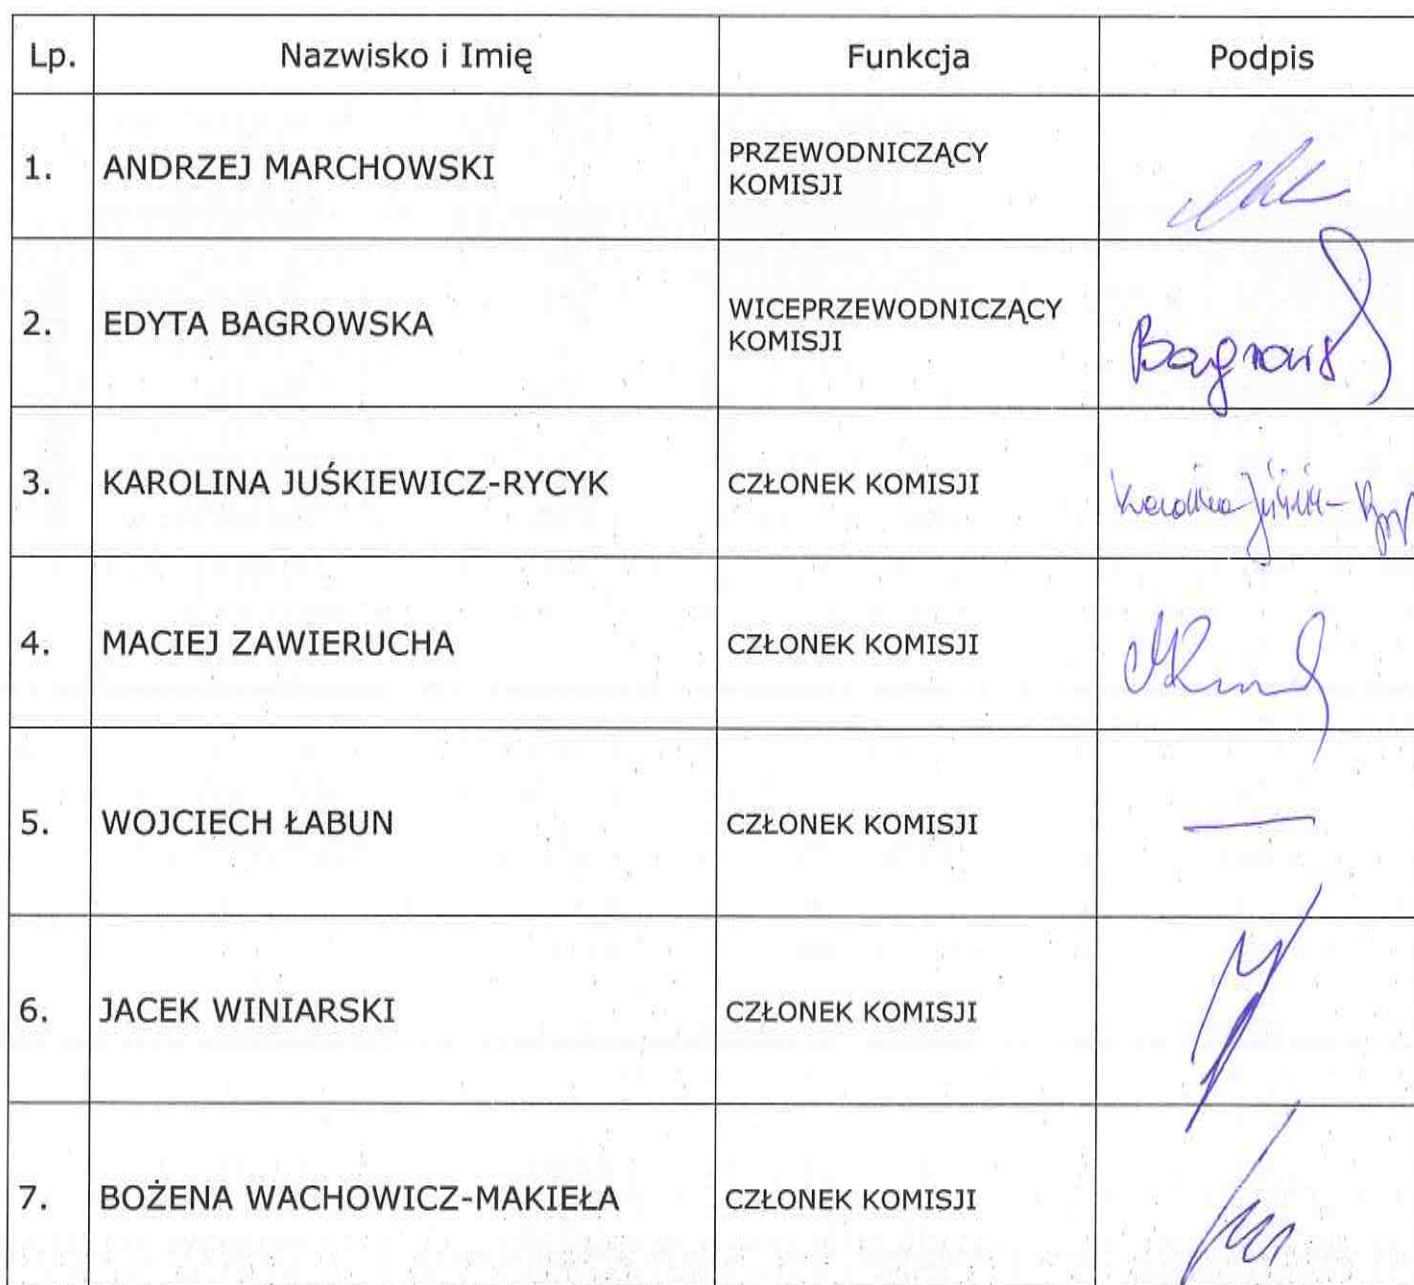 Lp. Nazwisko i Imię Funkcja Podpis
1. ANDRZEJ MARCHOWSKI PRZEWODNICZĄCY
KOMISJI
2. EDYTA BAGROWSKA WICEPRZEWODNICZĄCY
KOMISJI
3. KAROLINA JUŚKIEWICZ-RYCYK CZŁONEK KOMISJI
4. MACIEJ ZAWIERUCHA CZŁONEK KOMISJI
5. WOJCIECH ŁABUN CZŁONEK KOMISJI —
6. JACEK WINIARSKI CZŁONEK KOMISJI
7. BOŻENA WACHOWICZ-MAKIEŁA CZŁONEK KOMISJI